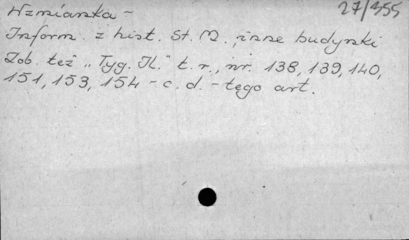 Wzmianka - 27/455
Inform. z hist. St. M., inne budynki
Zob. też "Tyg. Il." t. r., nr. 138, 139, 140,
151, 153, 154 - c. d. - tego art.